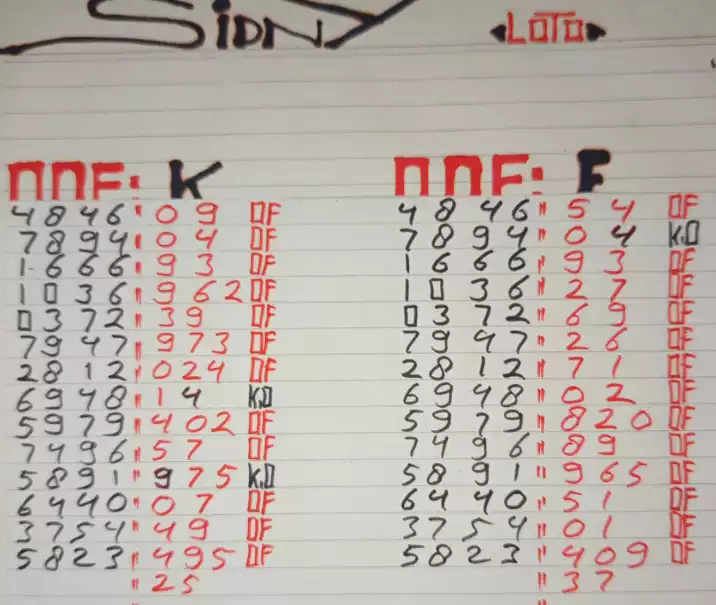 SIDNY
◀LOTO▶
ППF: K
4846 " 09 OF
7894 " 04 OF
1-666 " 93 OF
1036 " 962 OF
0372 " 39 OF
7947 " 973 OF
2812 " 024 OF
6948 " 14 K.O
5979 " 402 OF
7496 " 57 OF
5891 " 975 K.O
6440 " 07 OF
3754 " 49 OF
5823 " 495 OF
" 25
ППF: F
4846 " 54 OF
7894 " 04 K.O
1666 " 93 OF
1036 " 27 OF
0372 " 69 OF
7947 " 26 OF
2812 " 71 OF
6948 " 02 OF
5979 " 820 OF
7496 " 89 OF
5891 " 965 OF
6440 " 51 OF
3754 " 01 OF
5823 " 409 OF
" 37